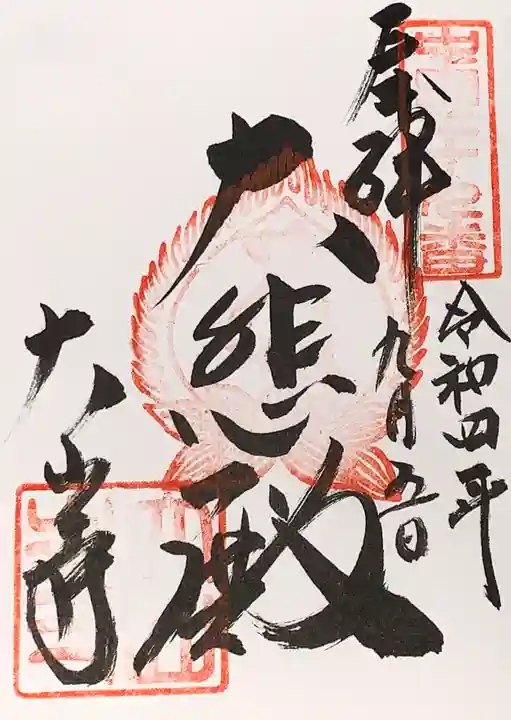 奉拝
令和四年
九月五日
大悲殿
太山寺